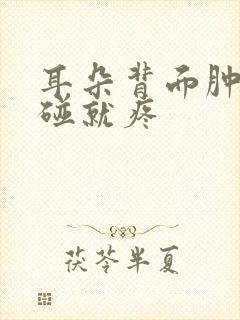 耳朵背而肿
碰就疼
茯苓半夏